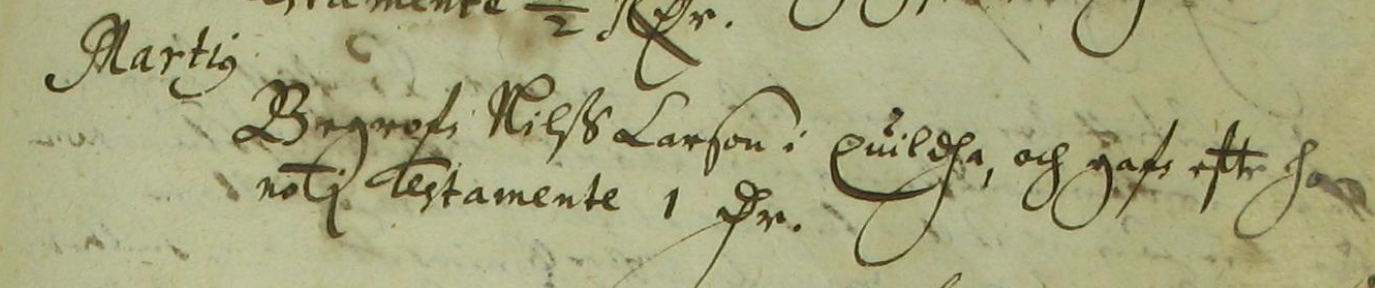 testamente ½ Dr.
Martij
Begrofs Nilss Larson i Quildha, och gafs efftr ho
notj Testamente 1 Dr.